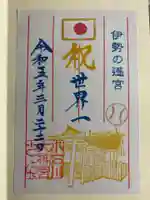 伊勢の遥宮
祝世界一
令和五年三月二十二日